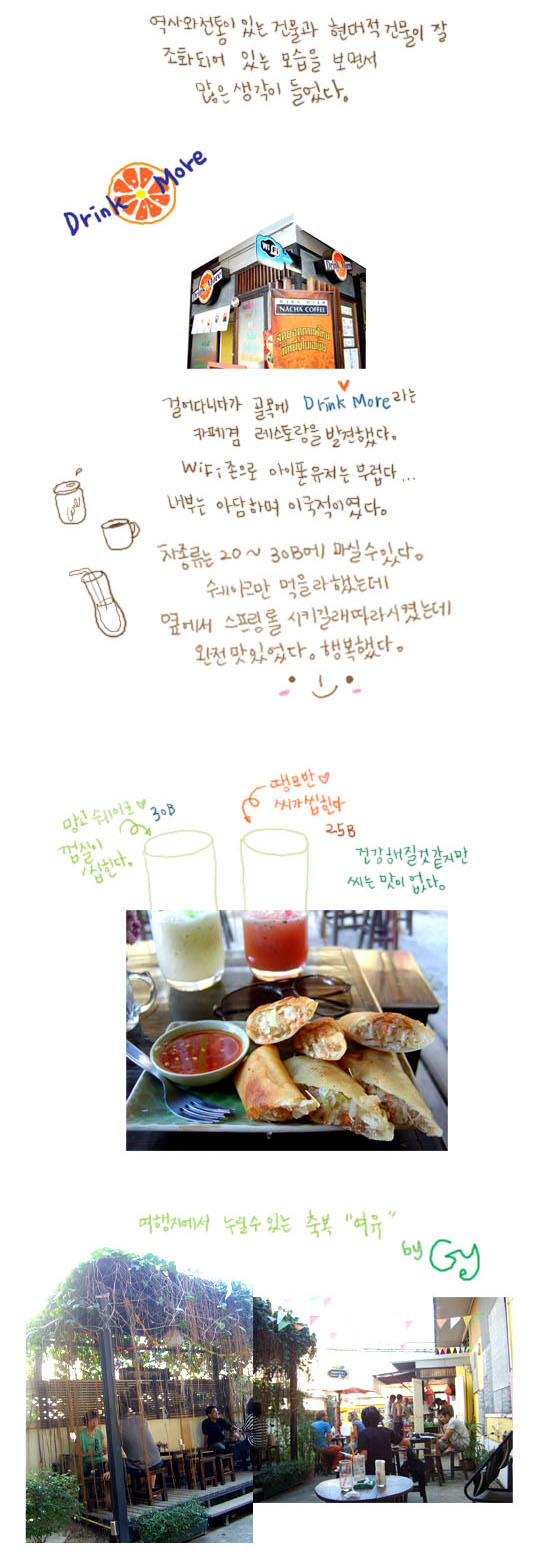 역사와전통이 있는 건물과 현대적 건물이 잘
조화되어 있는 모습을 보면서
많은 생각이 들었다。
Drink More
WiFi
Drink More!
Drink More!
NACHA COFFEE
걸어다니다가 골목에 Drink More라는
카페겸 레스토랑을 발견했다。
WiFi존으로 아이폰유저는 부럽다...
내부는 아담하며 이국적이였다。
차종류는 20~30B에 마실수있다。
쉐이크만 먹을라했는데
옆에서 스프링롤 시키길래따라시켰는데
완전맛있었다。행복했다。
망고쉐이크♡ 30B
껍질이
씹힌다。
땡모반♡
씨가씹힌다
25B
건강해질것같지만
씨는 맛이 없다。
여행지에서 누릴수 있는 축복 "여유"
by Gye